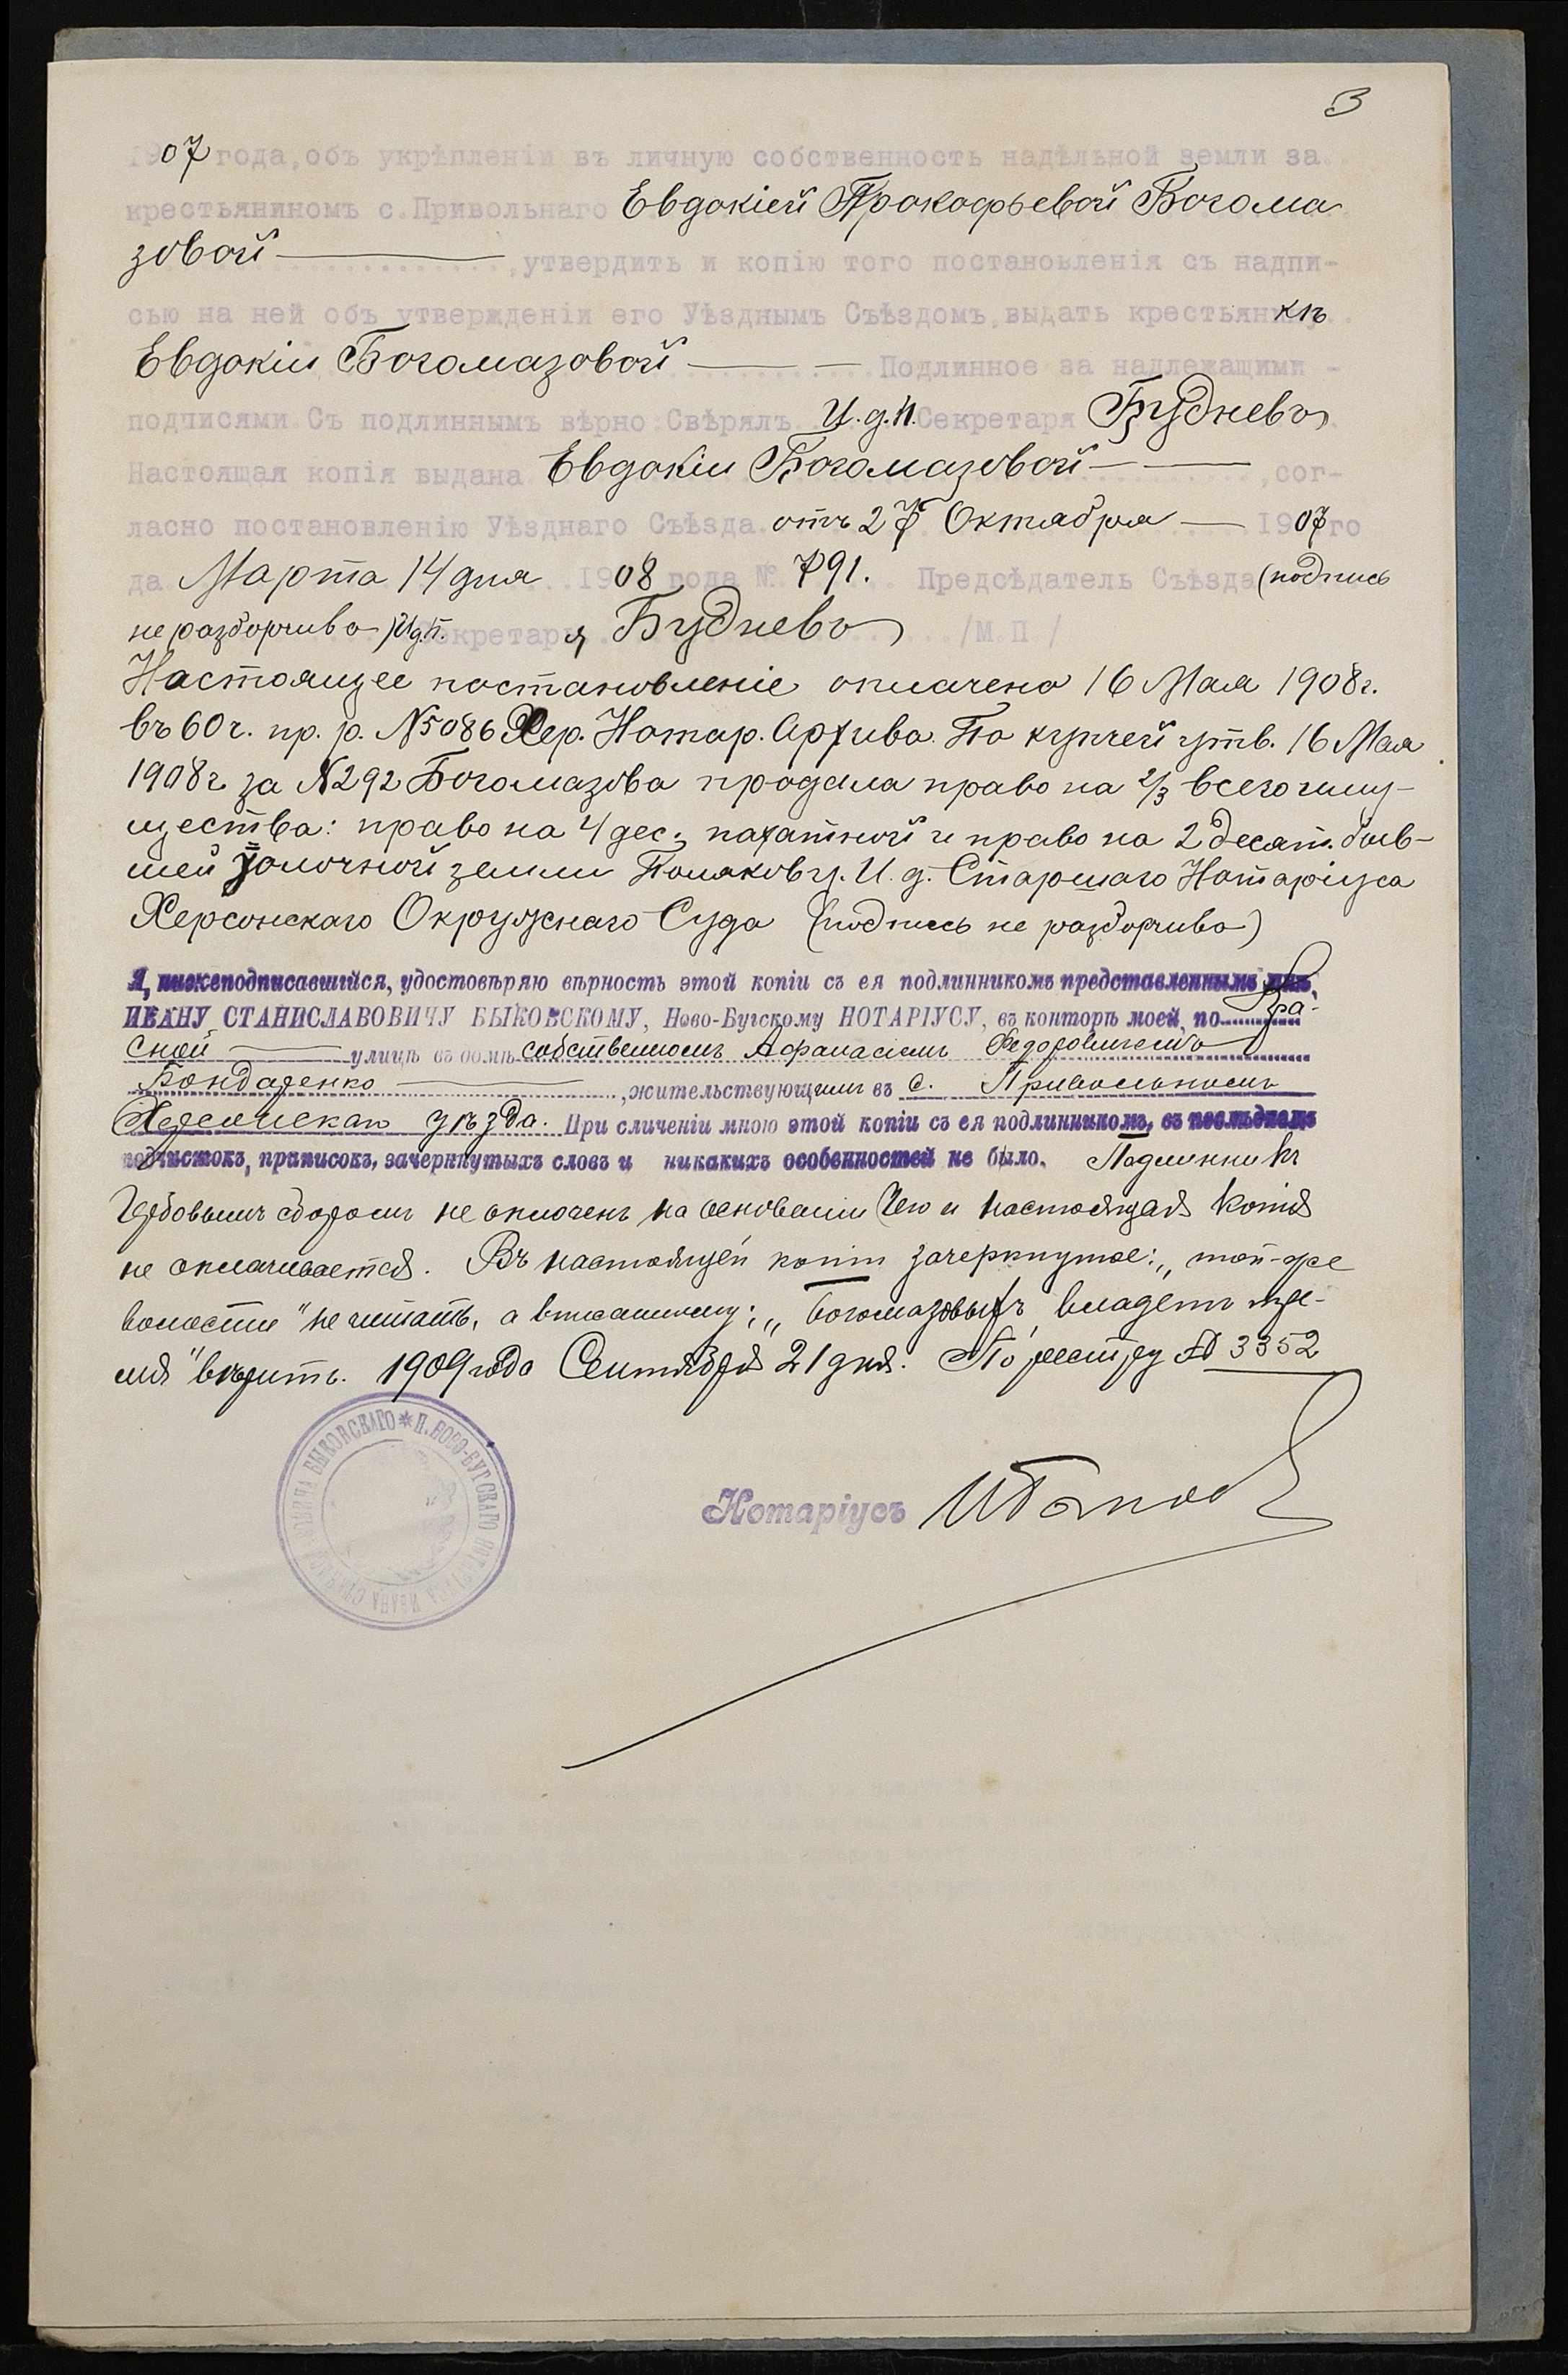 3
1907 года, объ укрѣпленіи въ личную собственность надѣльной земли за
крестьяниномъ с. Привольнаго Евдокіей Прокофьевой Богома
зовой ——— , утвердить и копію того постановленія съ надпи-
сью на ней объ утвержденіи его Уѣзднымъ Съѣздомъ, выдать крестьянкѣ
Евдокіи Богомазовой ——— Подлинное за надлежащими -
подписями. Съ подлиннымъ вѣрно: Свѣрялъ И. д. п. Секретаря Будневъ
Настоящая копія выдана Евдокіи Богомазовой ——— , сог-
ласно постановленію Уѣзднаго Съѣзда отъ 27 Октября — 1907 го
да Марта 14 дня 1908 года № 791. Предсѣдатель Съѣзда (подпись
не разборчива) И. д. п. Секретаря Будневъ /М.П/
Настоящее постановленіе оплачено 16 Мая 1908 г.
въ 60 г. пр. р. № 5086 Хер. Нотар. Архива. По купчей утв. 16 Мая
1908 г. за № 292 Богомазова продала право на 2/3 всего иму-
щества: право на 4 дес. пахатной и право на 2 десят. быв-
шей толочной земли Полякову. И. д. Старшаго Нотаріуса
Херсонскаго Окружнаго Суда (подпись не разборчива)
Я, нижеподписавшійся, удостовѣряю вѣрность этой копіи съ ея подлинникомъ представленнымъ мнѣ,
ИВАНУ СТАНИСЛАВОВИЧУ БЫКОВСКОМУ, Ново-Бугскому НОТАРІУСУ, въ конторѣ моей, по Кра-
сной ——— улицѣ въ домѣ собственномъ Афанасіемъ Федоровичемъ
Бондаренко ——— , жительствующимъ въ с. Привольномъ
Херсонскаго уѣзда. При сличеніи мною этой копіи съ ея подлинникомъ, въ послѣднемъ
подчистокъ, приписокъ, зачеркнутыхъ словъ и никакихъ особенностей не было. Подлинникъ
Гербовымъ сборомъ не оплоченъ на основаніи чего и настоящая копія
не оплачивается. Въ настоящей копіи зачеркнутое: „той-же
волости" не читать, а вписанному: „Богомазовыхъ владеть зем-
ля" вѣрить. 1909 года Сентября 21 дня. По реестру № 3352
Нотаріусъ